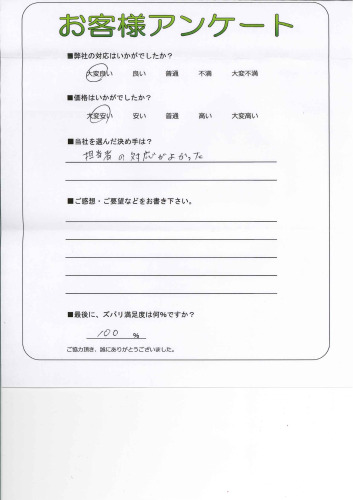 お客様アンケート
■弊社の対応はいかがでしたか？
大変良い 良い 普通 不満 大変不満
■価格はいかがでしたか？
大変安い 安い 普通 高い 大変高い
■当社を選んだ決め手は？
担当者の対応がよかった
■ご感想・ご要望などをお書き下さい。
■最後に、ズバリ満足度は何%ですか？
100 %
ご協力頂き、誠にありがとうございました。